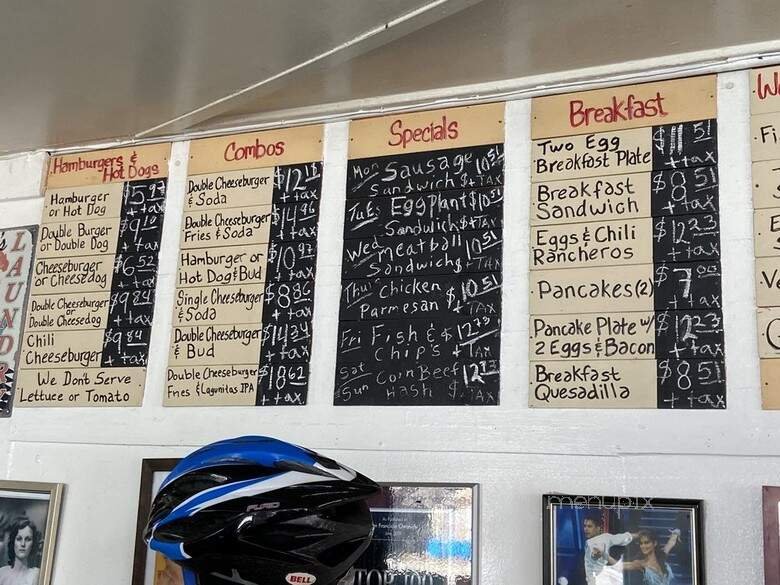 Hamburgers &
Hot Dogs
Hamburger
or Hot Dog
$5.97
+ tax
Double Burger
or Double Dog
+ tax
Cheeseburger
or Cheesedog
$6.52
+ tax
Double Cheeseburger
or Double Cheesedog
$9.84
+ tax
Chili
Cheeseburger
$9.84
+ tax
We Don't Serve
Lettuce or Tomato
Combos
Double Cheeseburger
& Soda
+ tax
Double Cheeseburger
Fries & Soda
$14.46
+ tax
Hamburger or
Hot Dog & Bud
$10.97
+ tax
Single Cheeseburger
& Soda
$8.86
+ tax
Double Cheeseburger
& Bud
$14.34
+ tax
Double Cheeseburger
Fries & Lagunitas IPA
$18.62
+ tax
Specials
Mon Sausage $10.51
Sandwich + TAX
Tues Eggplant $10.51
Sandwich + TAX
Wed Meatball $10.51
Sandwich + TAX
Thu Chicken $10.51
Parmesan + TAX
Fri Fish & $12.23
Chip's + TAX
Sat Corn Beef
Sun Hash + TAX
Breakfast
Two Egg
Breakfast Plate
$11.51
+ tax
Breakfast
Sandwich
$8.51
+ tax
Eggs & Chili
Rancheros
$12.23
+ tax
Pancakes (2)
+ tax
Pancake Plate w/
2 Eggs & Bacon
$12.23
+ tax
Breakfast
Quesadilla
$8.51
+ tax
LAUND
BELL
menupix
TOP 100